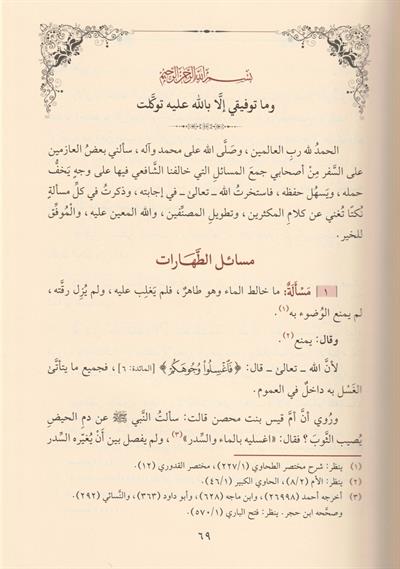 بسم الله الرحمن الرحيم
وما توفيقي إلَّا بالله عليه توكَّلت
الحمدُ لله ربِ العالمين، وصَلَّى الله على محمد وآله، سألني بعضُ العازمين
على السَّفر مِنْ أصحابي جمعَ المسائلِ التي خالفنا الشَّافعي فيها على وجهٍ يَخفُّ
حمله، ويَسهُل حفظه، فاستخرتُ الله ـ تعالىٰ ـ في إجابته، وذكرتُ في كلِّ مسألةٍ
نُكتًا تُغني عن كلامِ المكثرين، وتطويلِ المصنِّفين، والله المعين عليه، والمُوفِّق
للخير.
مسائل الطَّهَارات
١ مَسْأَلَةٌ: ما خالط الماء وهو طاهرٌ، فلم يَغلِب عليه، ولم يُزِل رقَّته،
لم يمنع الوُضوء به(١).
وقال: يمنع(٢).
لأنَّ الله ـ تعالىٰ ـ قال: ﴿فَٱغْسِلُوا۟ وُجُوهَكُمْ﴾ [المائدة: ٦]، فجميع ما يتأتَّىٰ
الغَسْل به داخلٌ في العموم.
ورُوي أنَّ أمَّ قيس بنت محصن قالت: سألتُ النَّبي ﷺ عن دمِ الحيضِ
يُصيب الثَّوبَ؟ فقال: «اغسليه بالماء والسِّدر»(٣)، ولم يفصل بين أَنْ يُغيّره السِّدر
(١) ينظر: شرح مختصر الطحاوي (٢٢٧/١)، مختصر القدوري (١٢).
(٢) ينظر: الأم (٨/٢)، الحاوي الكبير (٤٦/١).
(٣) أخرجه أحمد (٢٦٩٩٨)، وابن ماجه (٦٢٨)، وأبو داود (٣٦٣)، والنَّسائي (٢٩٢).
وصحَّحه ابن حجر. ينظر: فتح الباري (٥٧٠/١).
٦٩